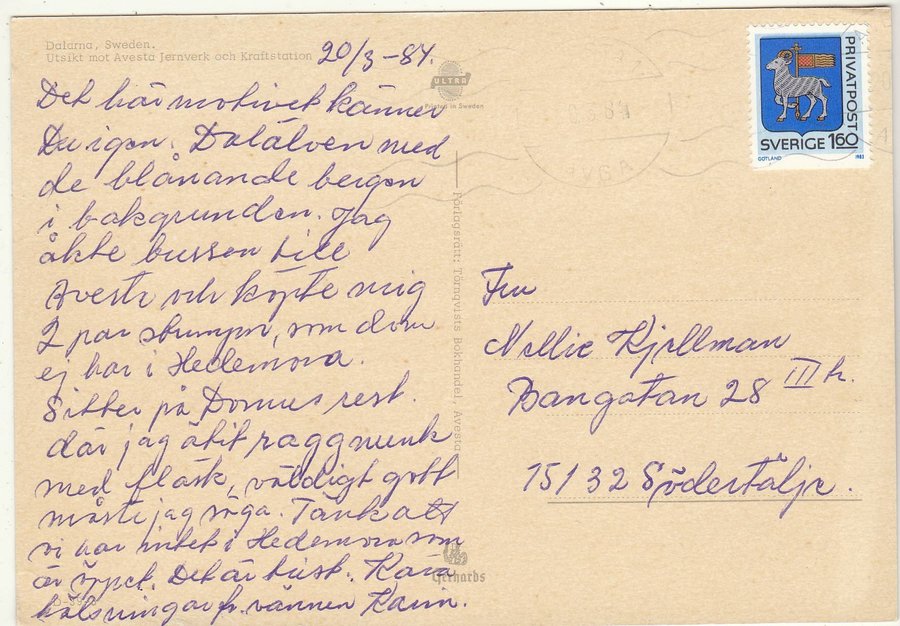 Dalarna, Sweden.
Utsikt mot Avesta Jernverk och Kraftstation
20/3-84.
ULTRA
Printed in Sweden
PRIVATPOST
SVERIGE 160
GOTLAND 1983
Det här motivet känner
Du igen. Dalälven med
de blånande bergen
i bakgrunden. Jag
åkte bussen till
Avesta och köpte mig
2 par strumpor, som dom
ej har i Hedemora.
Sitter på Domus rest.
där jag ätit raggmunk
med fläsk, väldigt gott
måste jag säga. Tänk att
vi har intet i Hedemora som
är öppet. Det är trist. Kära
hälsningar fr. vännen Karin.
Förlagsrätt: Törnqvists Bokhandel, Avesta
Gerhards
Fru
Nellie Kjellman
Bangatan 28 III h.
15132 Södertälje.